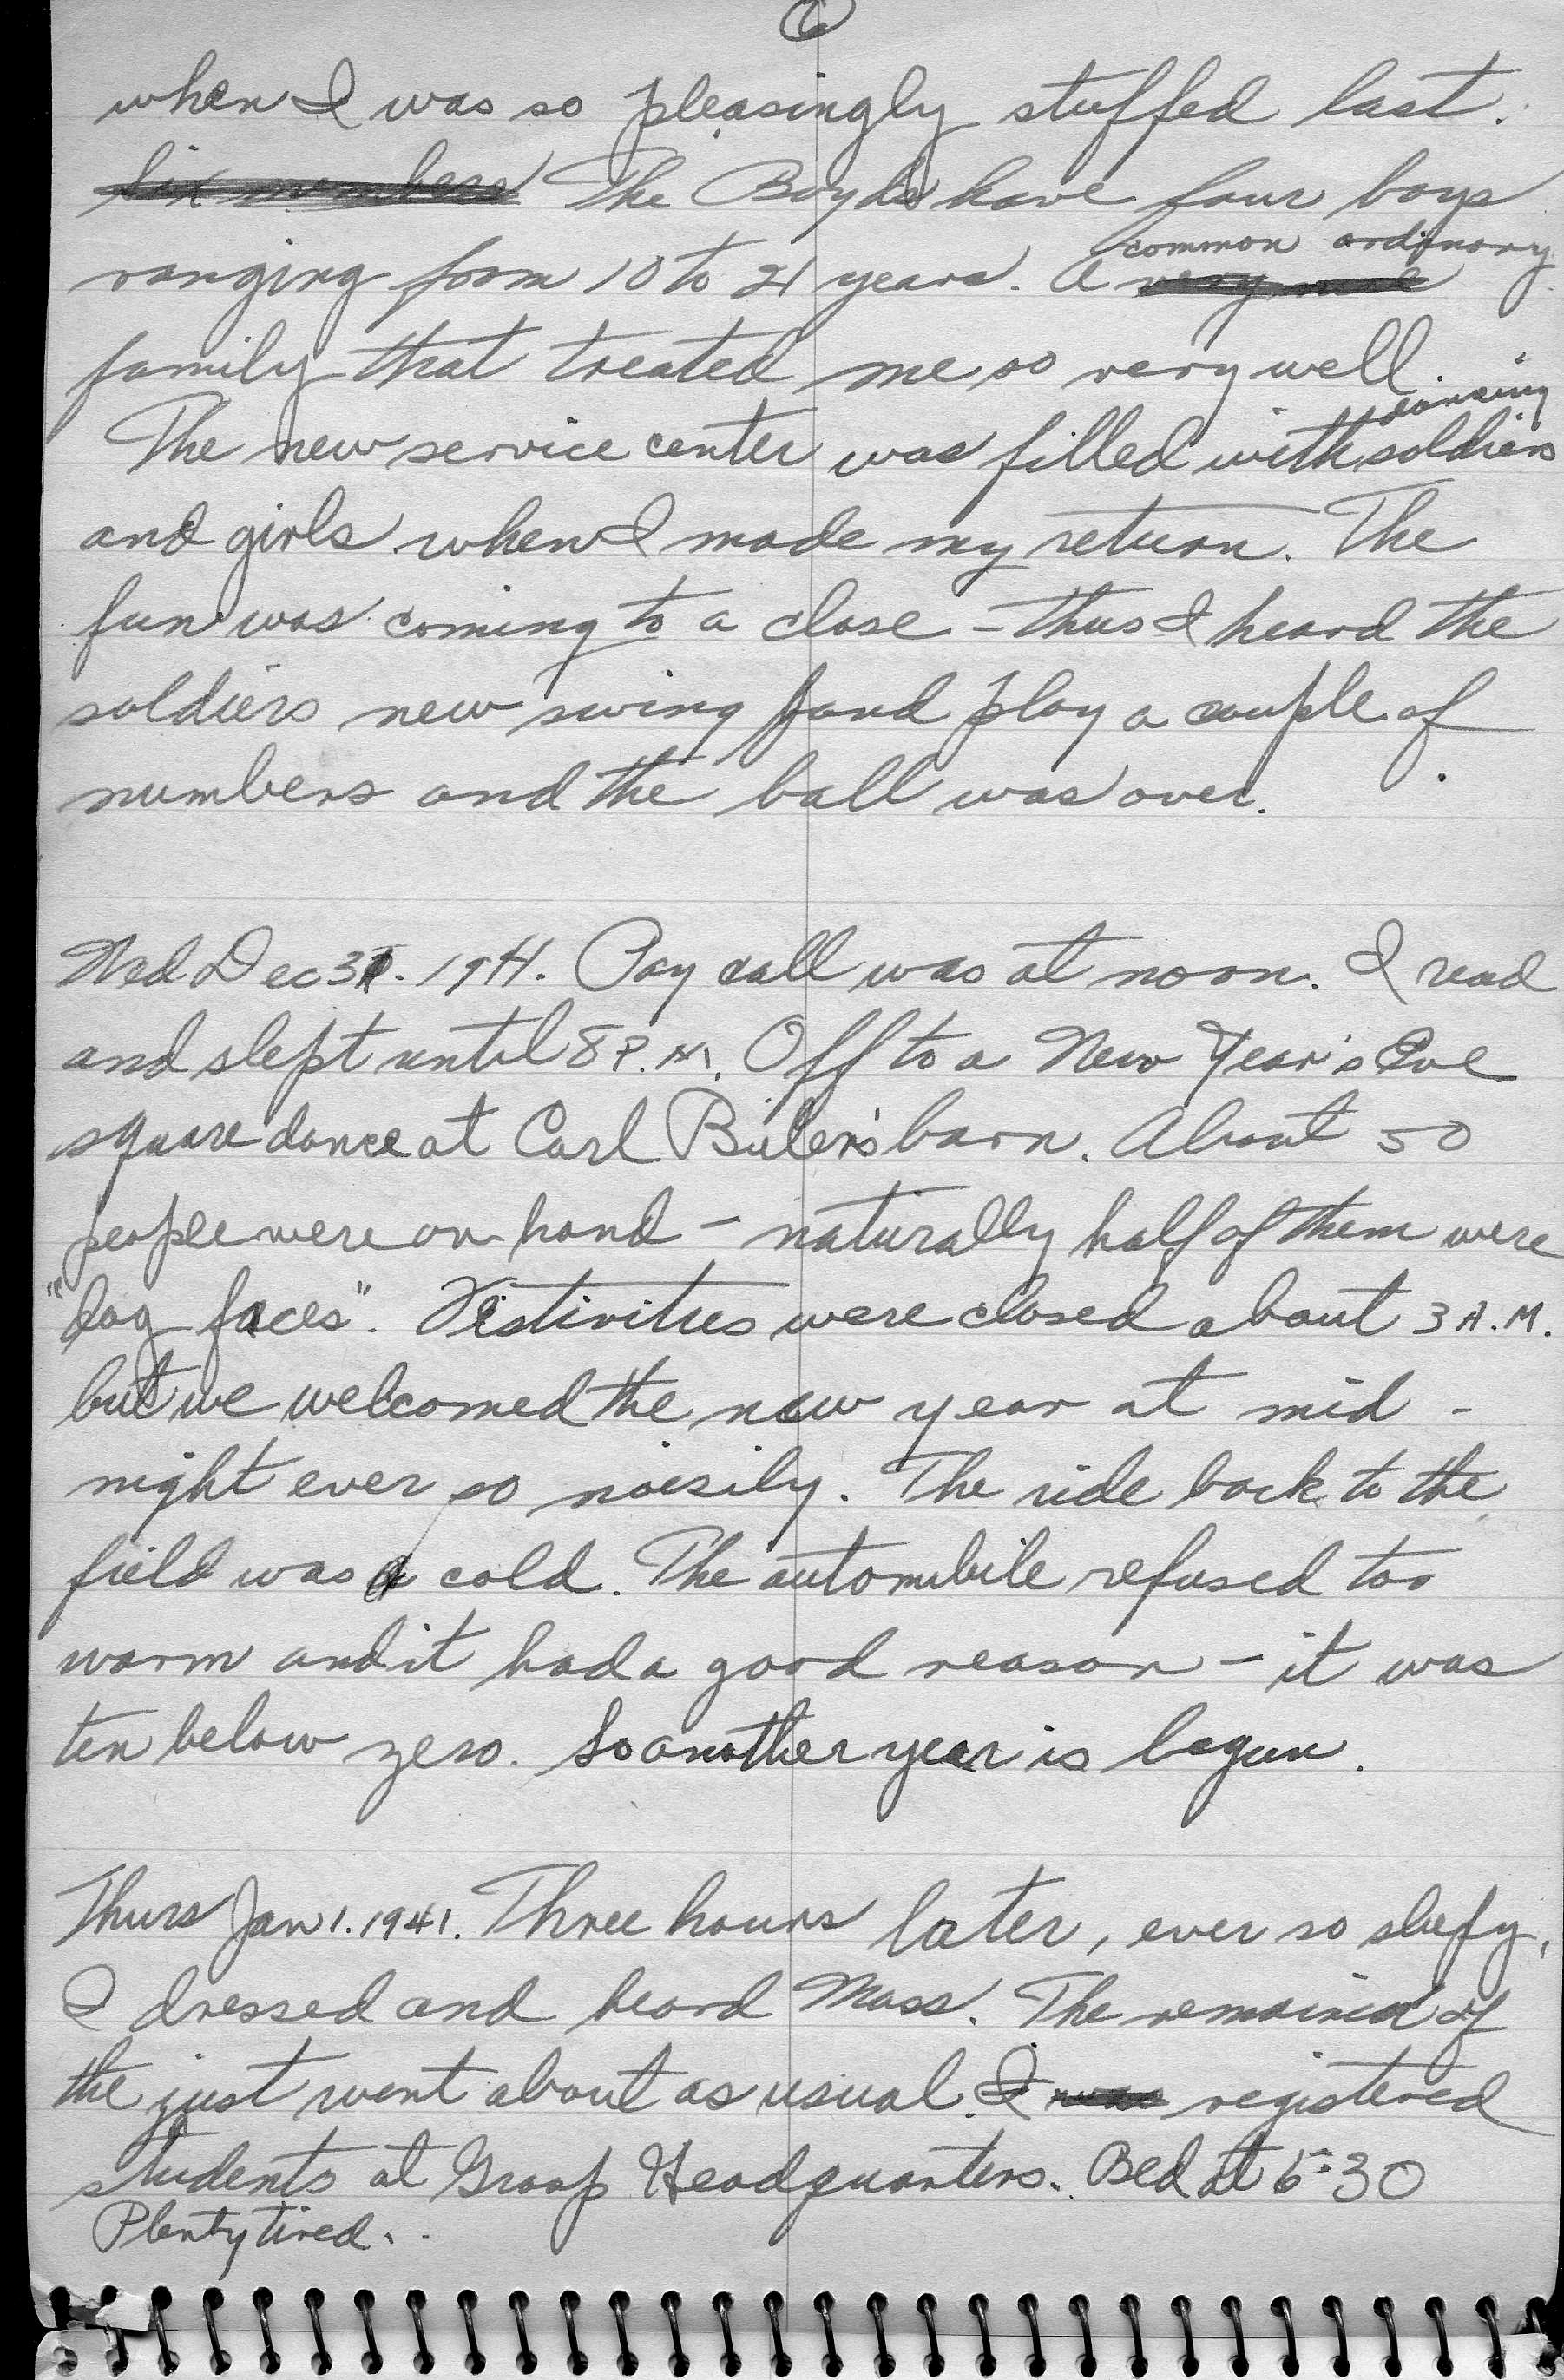 6
when I was so pleasingly stuffed last.
six members The Boyds have four boys
common ordinary
ranging from 10 to 21 years. A very nice
family that treated me so very well.
dancing
The new service center was filled with soldiers
and girls when I made my return. The
fun was coming to a close - thus I heard the
soldiers new swing band play a couple of
numbers and the ball was over.
Wed Dec 31. 1941. Pay call was at noon. I read
and slept until 8 P.M. Off to a New Year's Eve
square dance at Carl Bieler's barn. About 50
people were on hand - naturally half of them were
"dog faces". Festivities were closed about 3 A.M.
but we welcomed the new year at mid-
night ever so noisily. The ride back to the
field was a cold. The automobile refused too
warm and it had a good reason - it was
ten below zero. So another year is begun.
Thurs Jan 1. 1941. Three hours later, ever so sleepy,
I dressed and heard Mass. The remained of
the just went about as usual. I was registered
students at Group Headquarters. Bed at 6:30
Plenty tired.